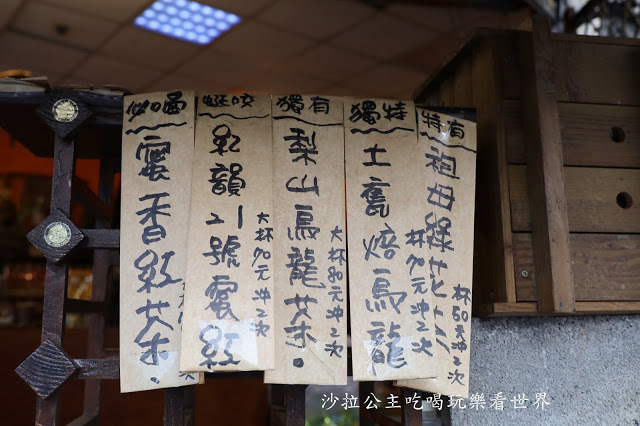 必喝
蜜香紅茶.
大
超夯
紅韻21號蜜紅
大杯70元沖2次
獨有
梨山烏龍茶.
大杯80元沖2次
獨特
土甕焙烏龍
杯70元沖2次
特有
祖母綠花茶
杯50元沖2次
沙拉公主吃喝玩樂看世界